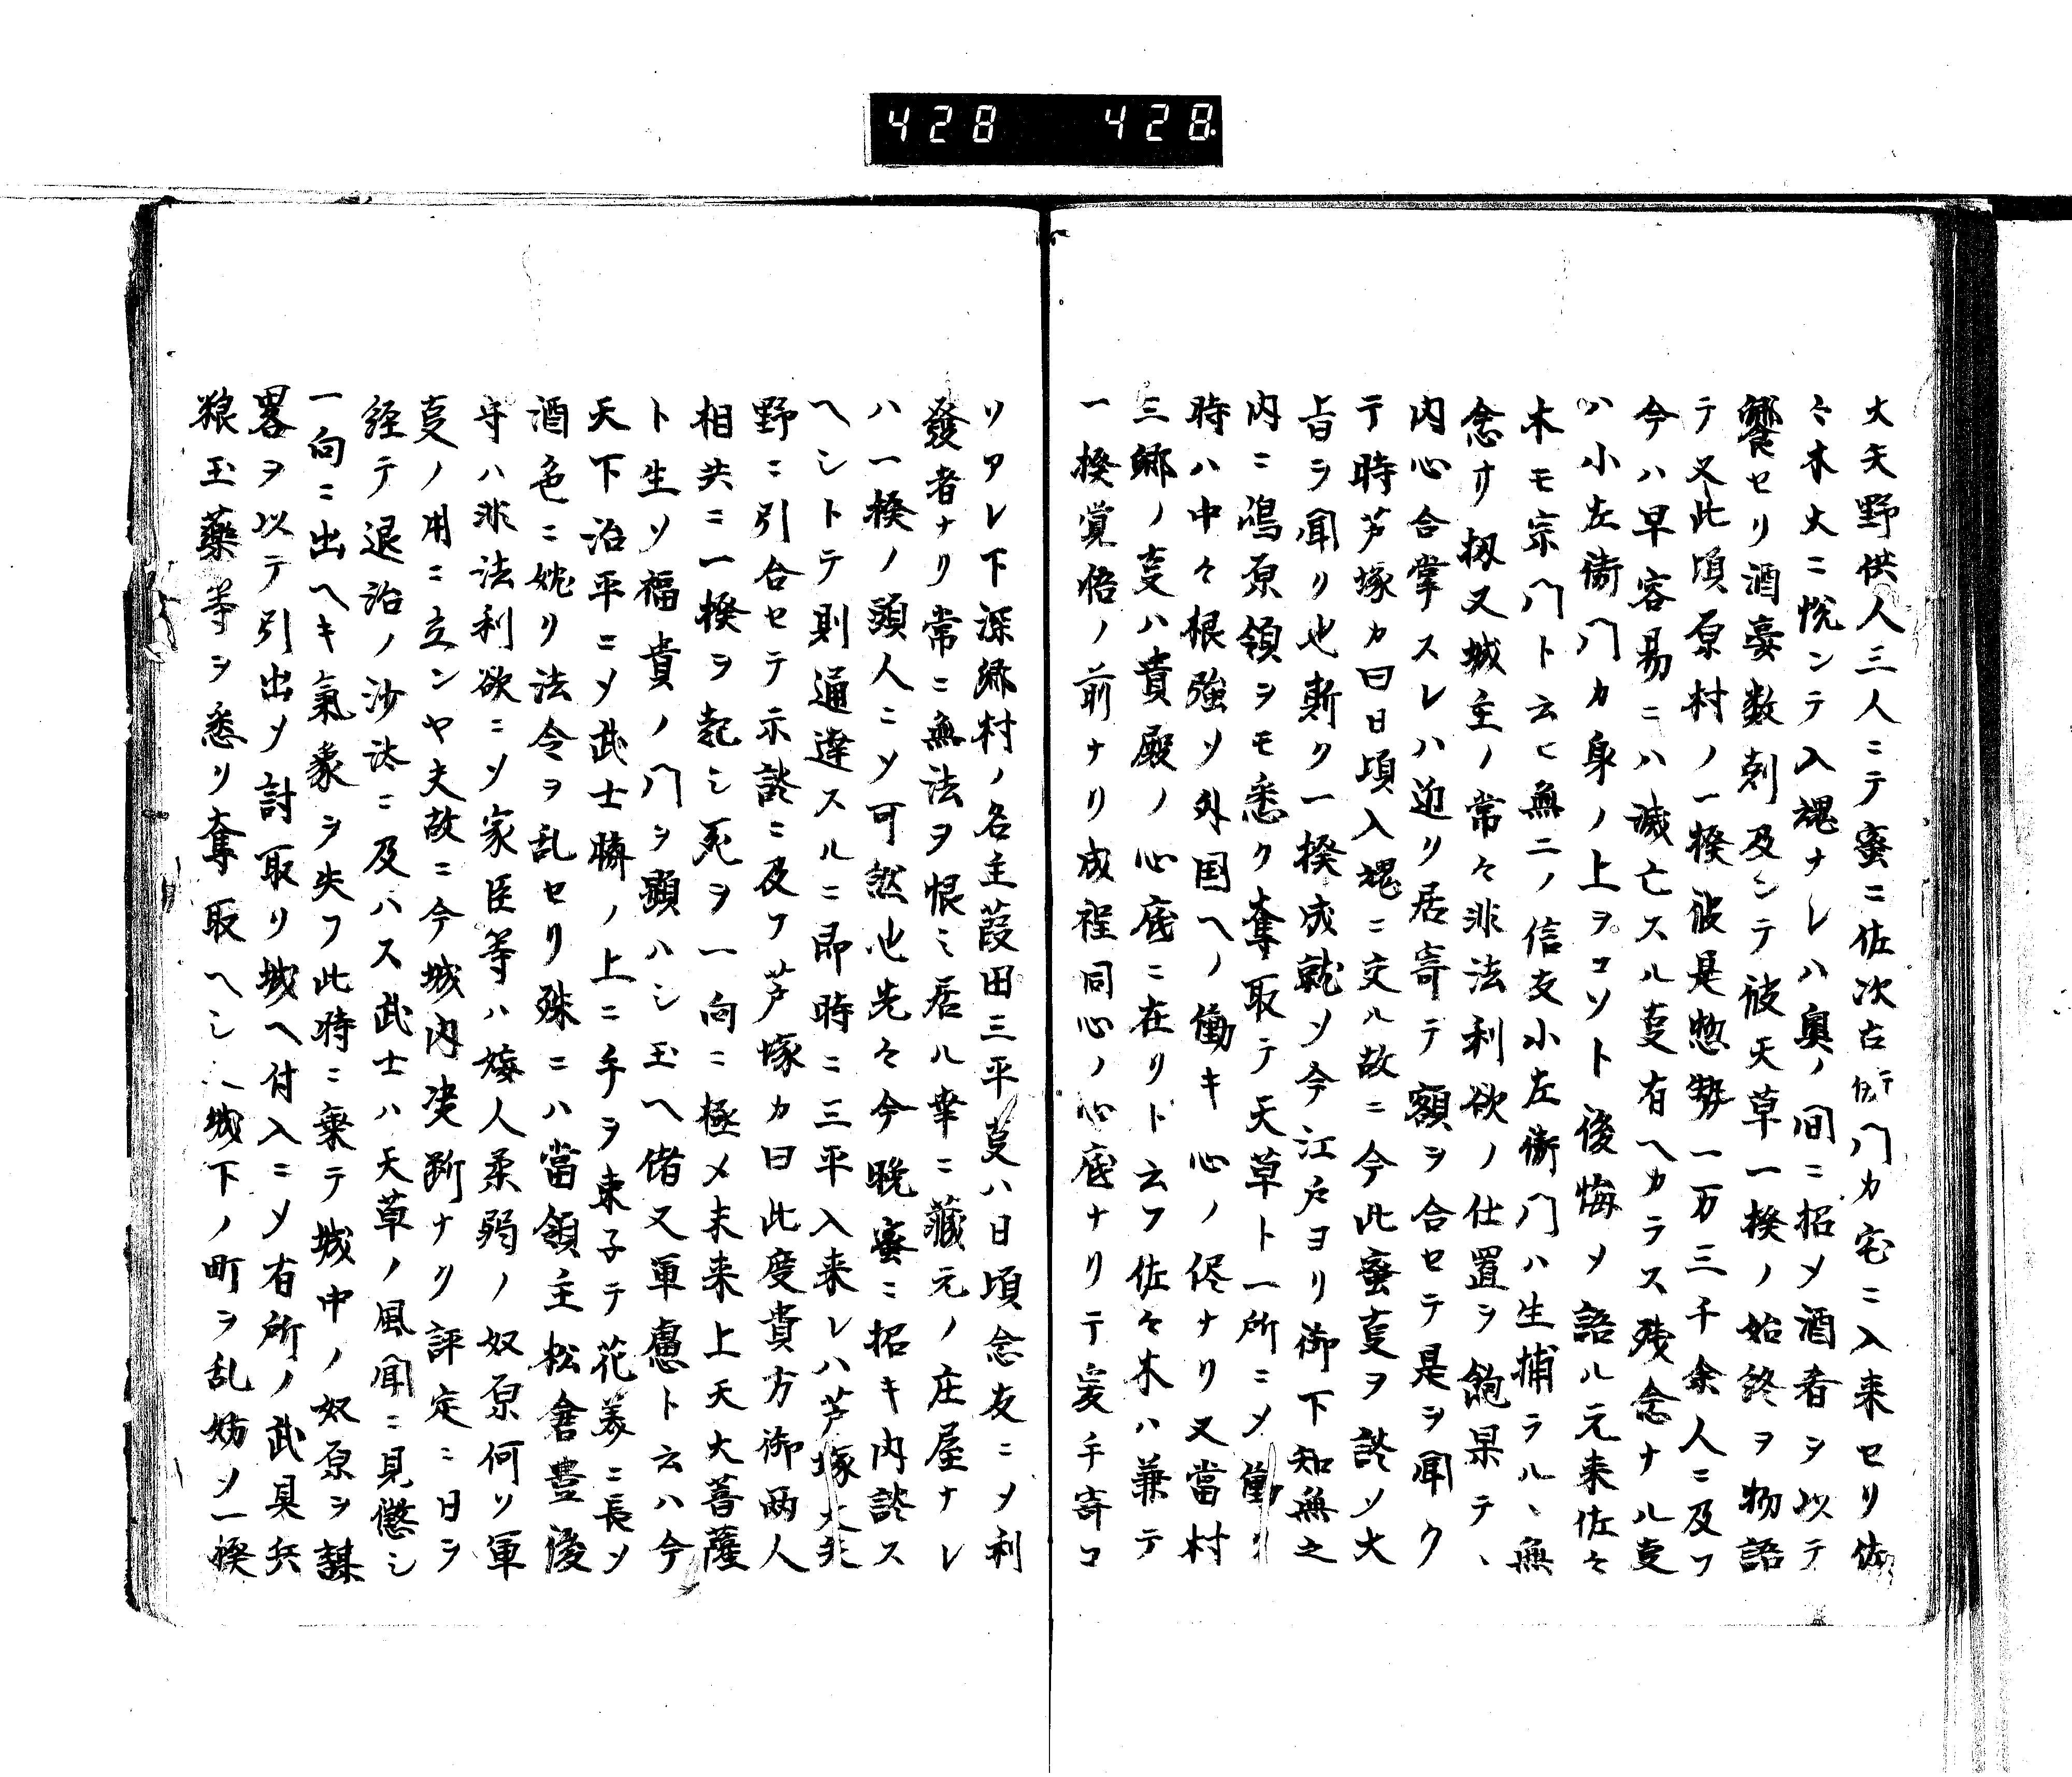 428 428
大矢野供人三人ニテ蜜ニ佐次右衛門カ宅ニ入来セリ佐
々木大ニ悦ンテ入魂ナレハ奥ノ間ニ招メ酒肴ヲ以テ
饗セリ酒宴数刻及ンテ彼天草一揆ノ始終ヲ物語
テ又此頃原村ノ一揆彼是惣勢一万三千余人ニ及フ
今ハ早容易ニハ滅亡スル夏有ヘカラス残念ナル夏
ハ小左衛門カ身ノ上ヲコソト後悔メ語ル元来佐々
木モ宗門ト云ヒ無二ノ信友小左衛門ハ生捕ラルヽ無
念ナリ扨又城主ノ常々非法利欲ノ仕置ヲ飽果テヽ
内心合掌スレハ迎リ居寄テ額ヲ合セテ是ヲ聞ク
テ時芦塚カ曰日頃入魂ニ交ル故ニ今此蜜夏ヲ談ソ大
旨ヲ聞リ也斯ク一揆成就ソ今江戸ヨリ御下知無之
内ニ嶋原領ヲモ悉ク奪取テ天草ト一所ニメ働ク
時ハ中々根強ソ外国ヘノ働キ心ノ侭ナリ又當村
三郷ノ夏ハ貴殿ノ心底ニ在リト云フ佐々木ハ兼テ
一揆覚悟ノ前ナリ成程同心ノ心底ナリテ爰手寄コ
ソアレ下深郷村ノ名主葭田三平夏ハ日頃念友ニメ利
發者ナリ常ニ無法ヲ恨ミ居ル幸ニ藏元ノ庄屋ナレ
ハ一揆ノ頭人ニソ可然也先々今晩蜜ニ招キ内談ス
ヘシトテ則通達スルニ即時ニ三平入来レハ芦塚大矢
野ニ引合セテ示談ニ及フ芦塚カ曰此度貴方御両人
相共ニ一揆ヲ起シ死ヲ一向ニ極メ末来上天大菩薩
ト生ソ福貴ノ門ヲ顕ハシ玉ヘ偖又軍慮ト云ハ今
天下治平ニソ武士勝ノ上ニ手ヲ束子テ花美ニ長ソ
酒色ニ婏リ法令ヲ乱セリ殊ニハ當領主松倉豊後
守ハ非法利欲ニソ家臣等ハ婦人柔弱ノ奴原何リ軍
夏ノ用ニ立ンヤ夫故ニ今城内决断ナリ評定ニ日ヲ
経テ退治ノ沙汰ニ及ハス武士ハ天草ノ風聞ニ見懲シ
一向ニ出ヘキ氣象ヲ失フ此時ニ乗テ城中ノ奴原ヲ謀
畧ヲ以テ引出メ討取リ城ヘ付入ニメ有所ノ武具兵
粮玉薬等ヲ悉リ奪取ヘシ城下ノ町ヲ乱妨ソ一揆